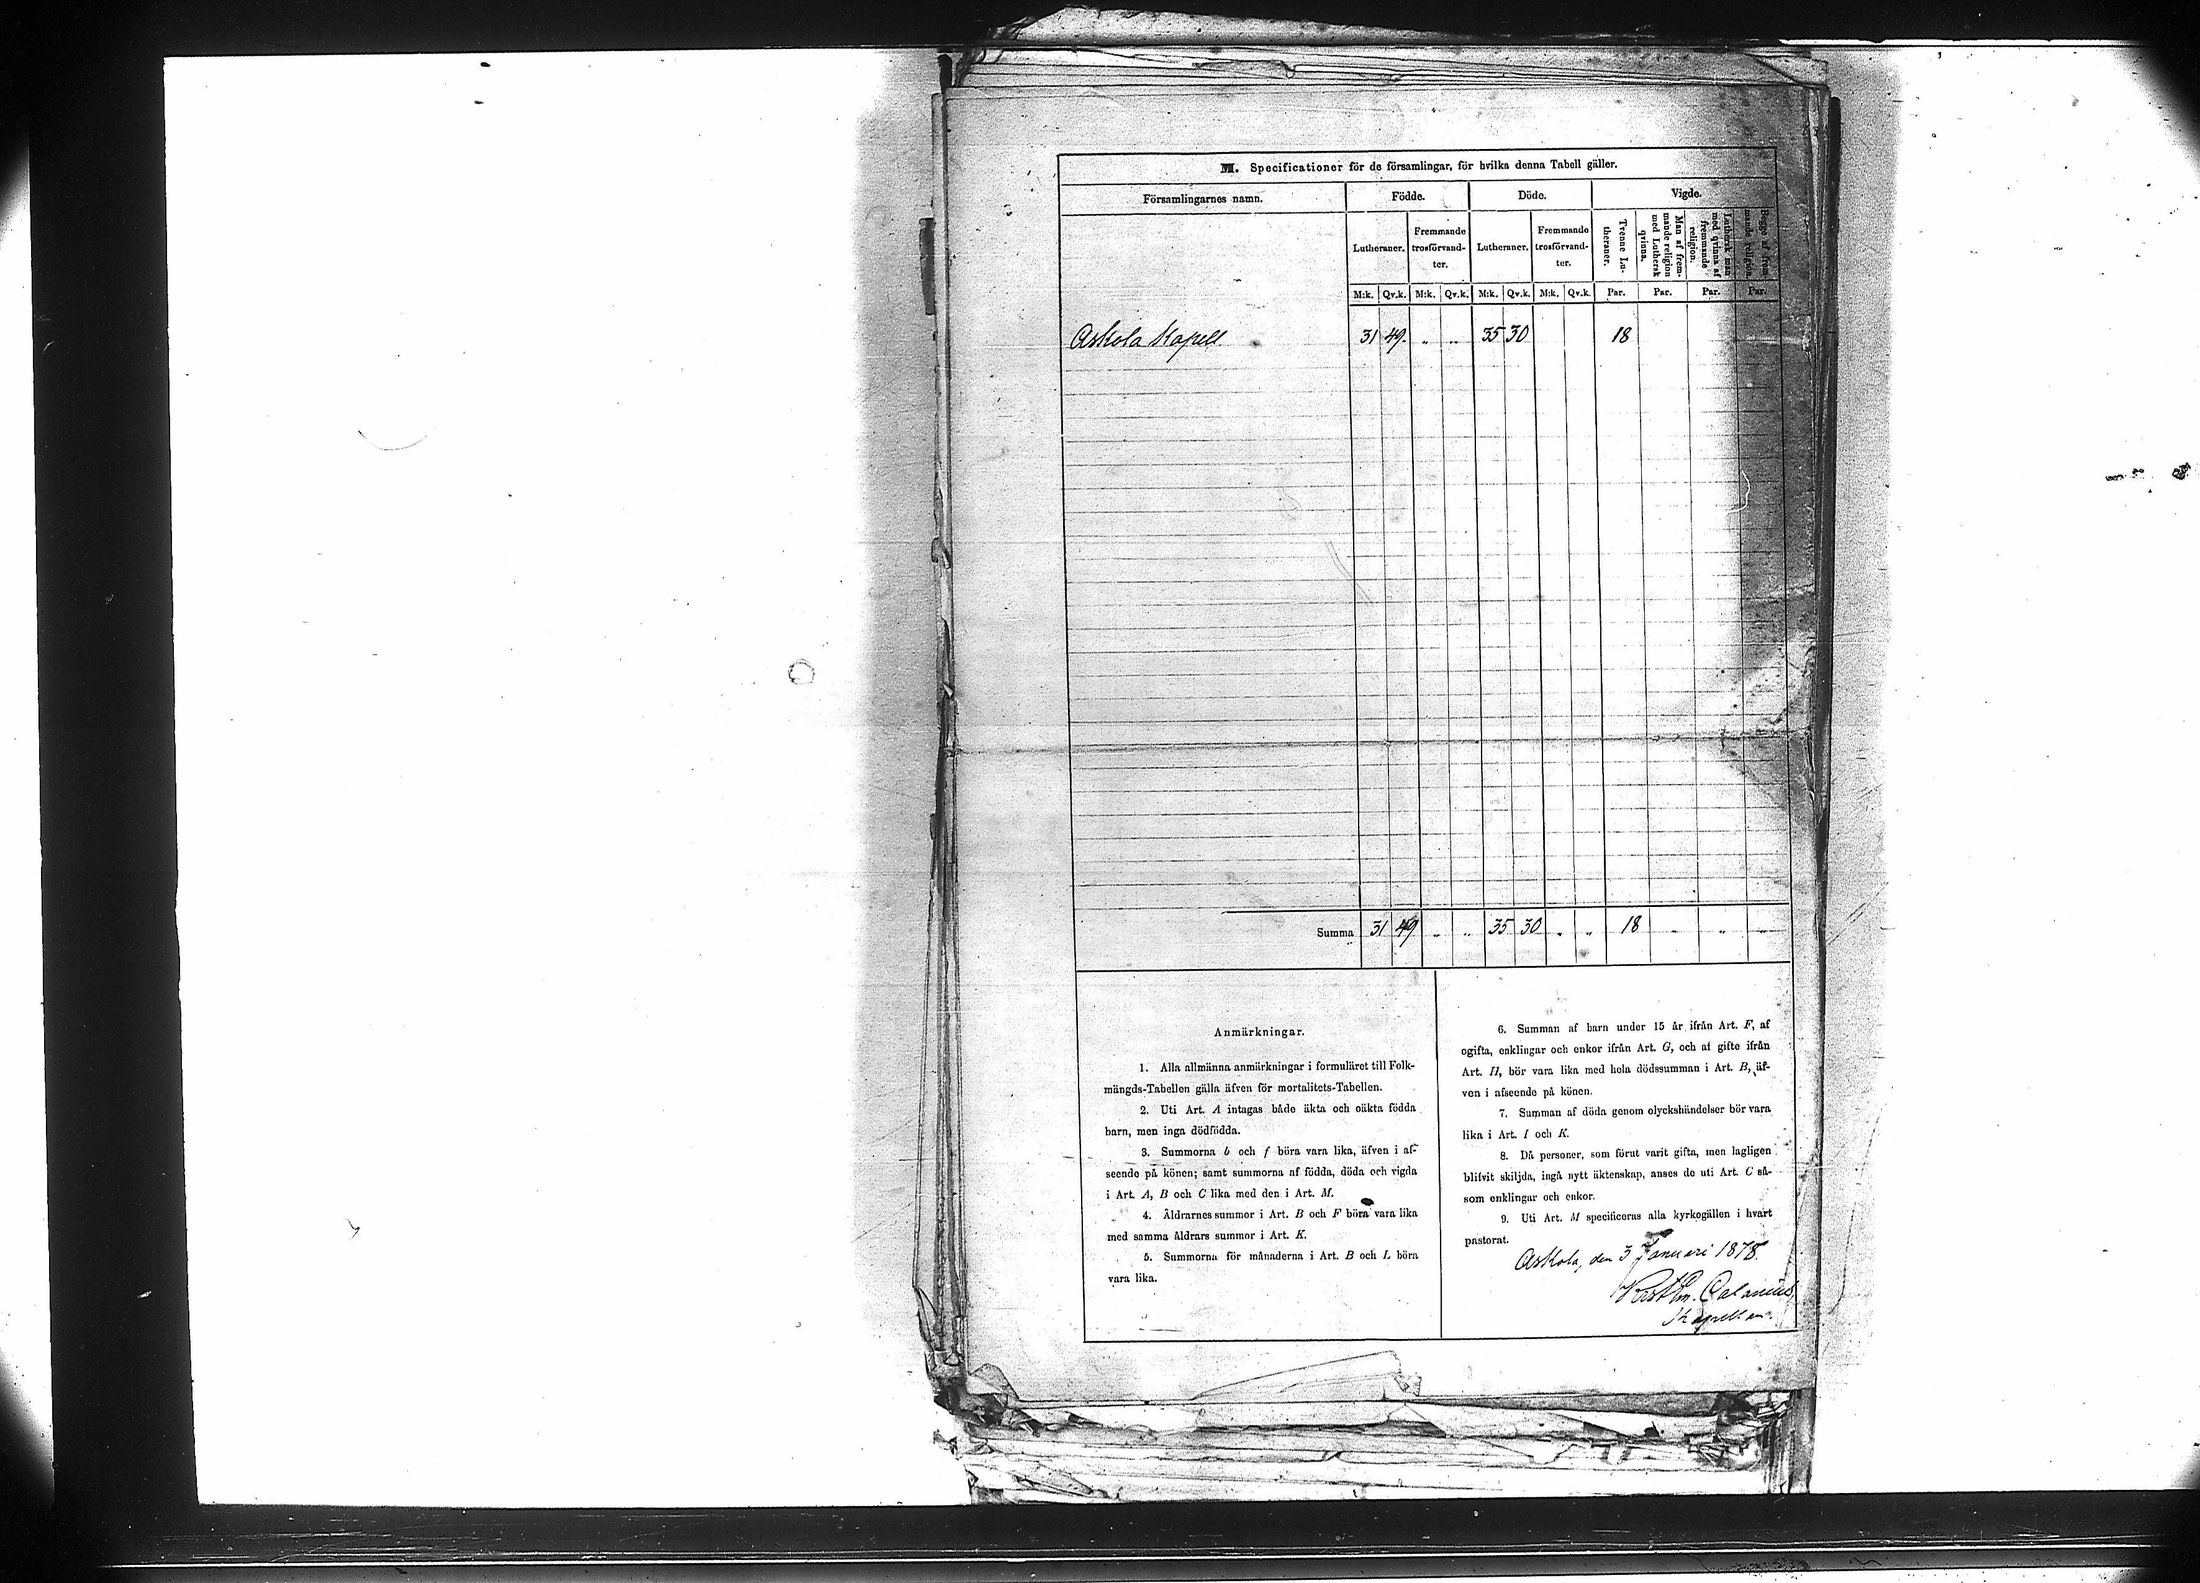 M. Specificationer för de församlingar, för hvilka denna Tabell gäller.
Församlingarnes namn. Födde. Döde. Vigde.
Lutheraner. Fremmande trosförvandter. Lutheraner. Fremmande trosförvandter. Trenne Lutheraner. Man af fremmande religion med Luthersk qvinna. Luthersk man med qvinna af fremmande religion. Begge af fremmande religion.
M:k. Qv.k. M:k. Qv.k. M:k. Qv.k. M:k. Qv.k. Par. Par. Par. Par.
Askola Kapell 31 49 „ „ 35 30 18
Summa 31 49 „ „ 35 30 „ „ 18 „ „ „
Anmärkningar.
1. Alla allmänna anmärkningar i formuläret till Folk-
mängds-Tabellen gälla äfven för mortalitets-Tabellen.
2. Uti Art. A intagas både äkta och oäkta födda
barn, men inga dödfödda.
3. Summorna b och f böra vara lika, äfven i af-
seende på könen; samt summorna af födda, döda och vigda
i Art. A, B och C lika med den i Art. M.
4. Åldrarnes summor i Art. B och F böra vara lika
med samma åldrars summor i Art. K.
5. Summorna för månaderna i Art. B och L böra
vara lika.
6. Summan af barn under 15 år ifrån Art. F, af
ogifta, enklingar och enkor ifrån Art. G, och af gifte ifrån
Art. H, bör vara lika med hela dödssumman i Art. B, äf-
ven i afseende på könen.
7. Summan af döda genom olyckshändelser bör vara
lika i Art. I och K.
8. Då personer, som förut varit gifta, men lagligen
blifvit skiljda, ingå nytt äktenskap, anses de uti Art. C så-
som enklingar och enkor.
9. Uti Art. M specificeras alla kyrkogällen i hvart
pastorat.
Askola, den 3 Januari 1878.
Calamnius,
Kapellan.